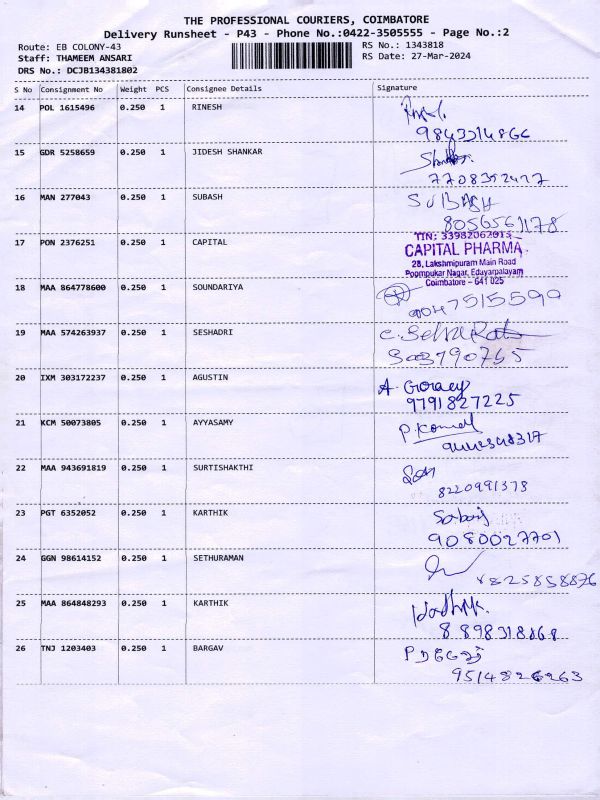 THE PROFESSIONAL COURIERS, COIMBATORE
Delivery Runsheet - P43 - Phone No.:0422-3505555 - Page No.:2
Route: EB COLONY-43 RS No.: 1343818
Staff: THAMEEM ANSARI RS Date: 27-Mar-2024
DRS No.: DCJB134381802
S No Consignment No Weight PCS Consignee Details Signature
14 POL 1615496 0.250 1 RINESH
15 GDR 5258659 0.250 1 JIDESH SHANKAR
16 MAN 277043 0.250 1 SUBASH SUBASH
8056561178
17 PON 2376251 0.250 1 CAPITAL
TIN: 33982062013
CAPITAL PHARMA
28, Lakshmipuram Main Road
Poompukar Nagar, Edayarpalayam
Coimbatore - 641 025
18 MAA 864778600 0.250 1 SOUNDARIYA
19 MAA 574263937 0.250 1 SESHADRI
20 IXM 303172237 0.250 1 AGUSTIN
9791827225
21 KCM 50073805 0.250 1 AYYASAMY
22 MAA 943691819 0.250 1 SURTISHAKTHI
8220991373
23 PGT 6352052 0.250 1 KARTHIK
9080027701
24 GGN 98614152 0.250 1 SETHURAMAN
25 MAA 864848293 0.250 1 KARTHIK
26 TNJ 1203403 0.250 1 BARGAV
9514826263